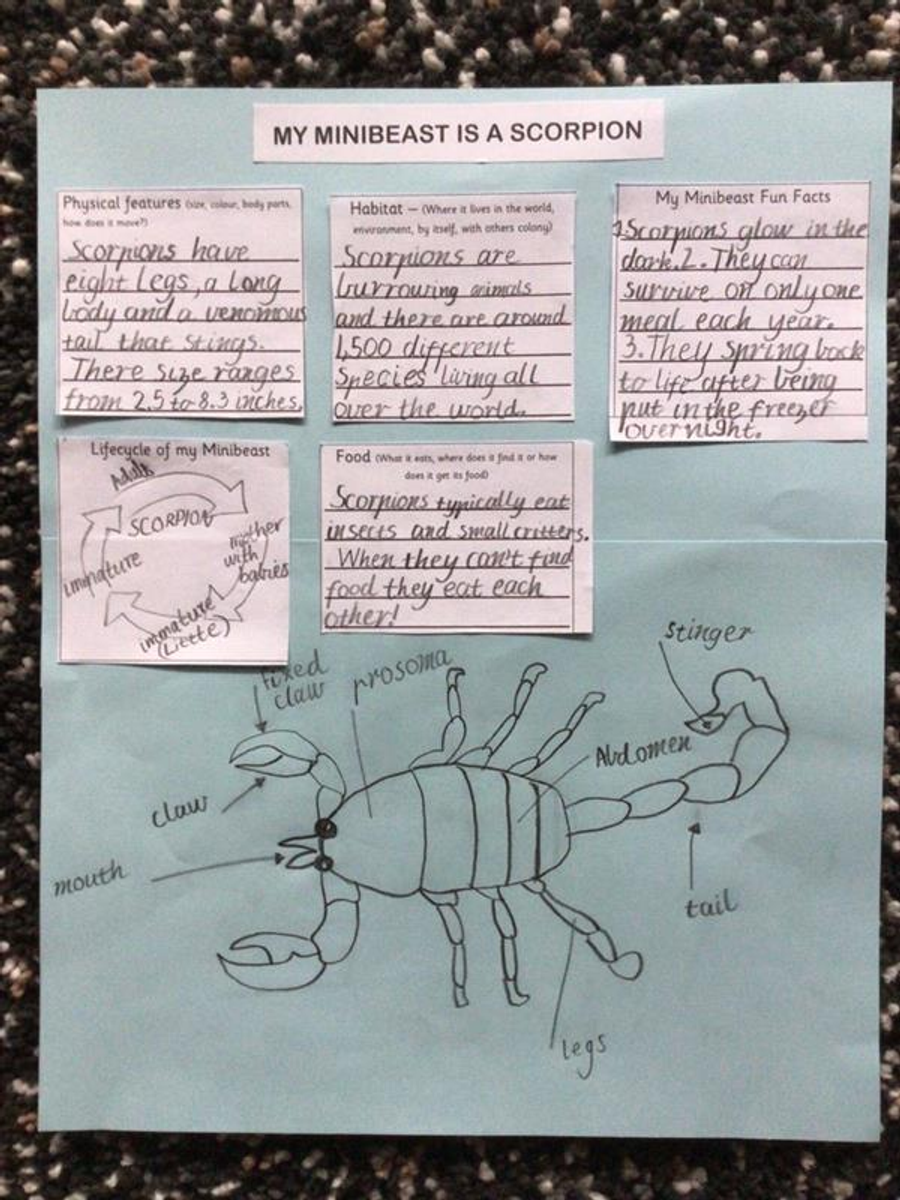 MY MINIBEAST IS A SCORPION
Physical features (size, colour, body parts,
how does it move?)
Scorpions have
eight legs, a long
body and a venomous
tail that stings.
There size ranges
from 2.5 to 8.3 inches.
Habitat – (Where it lives in the world,
environment, by itself, with others colony)
Scorpions are
burrowing animals
and there are around
1,500 different
Species living all
over the world.
My Minibeast Fun Facts
1.Scorpions glow in the
dark. 2. They can
survive on only one
meal each year.
3. They spring back
to life after being
put in the freezer
overnight.
Lifecycle of my Minibeast
Adult
SCORPION
mother
with
babies
immature
immature
(Little)
Food (What it eats, where does it find it or how
does it get its food)
Scorpions typically eat
insects and small critters.
When they can't find
food they eat each
other!
stinger
fixed
claw
prosoma
Abdomen
claw
mouth
tail
legs